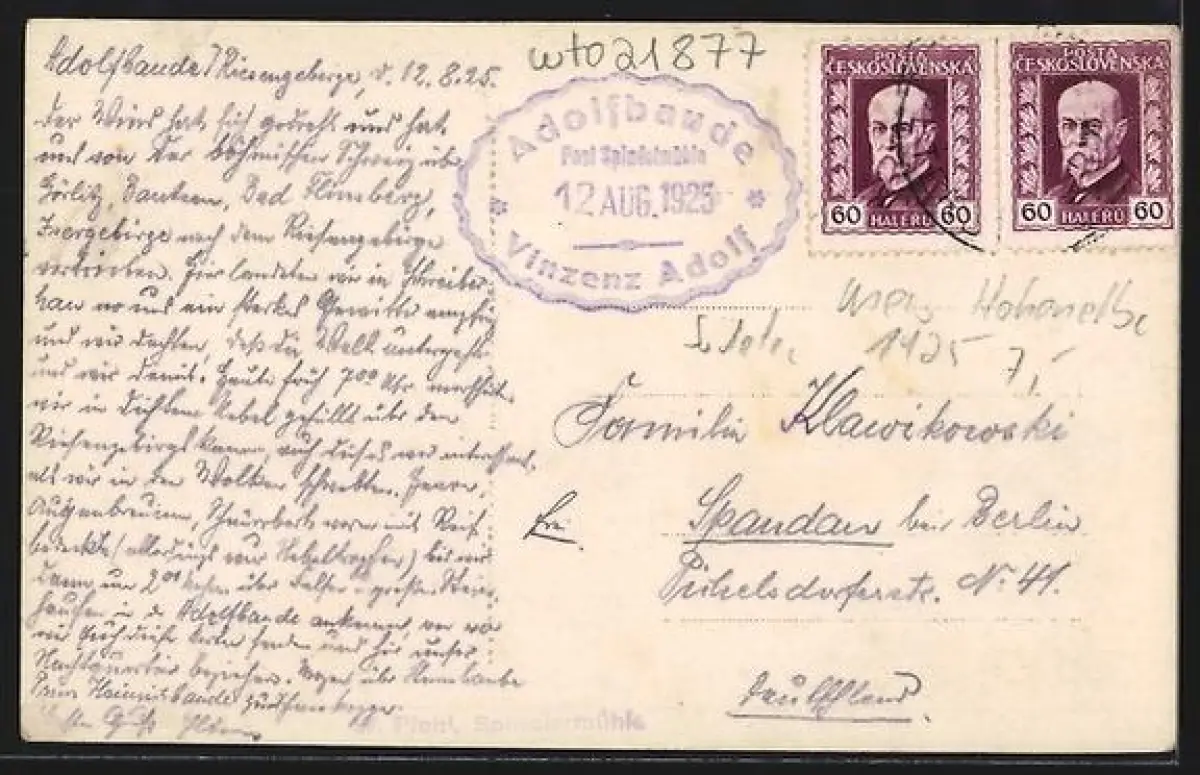 Adolfbaude / Riesengebirge, d. 12.8.25.
Der Wind hat sich gedreht und hat
uns von der böhmischen Schweiz über
Görlitz, Bautzen, Bad Flinsberg,
Isergebirge nach dem Riesengebirge
vertrieben. Hier landeten wir in Schreiber-
hau wo uns ein starkes Gewitter empfing
und wir dachten, daß die Welt untergeht
und wir damit. Heute früh 7.00 Uhr
wir in dichtem Nebel gehüllt über den
Riesengebirgskamm, auch dieses war interessant,
als wir in den Wolken schwebten.
Augenbrauen, Schnurrbart waren mit Reif
bedeckt (allerdings nur Nebeltropfen) bis wir
dann um 2 Uhr über Felsen
in d. Adolfbaude ankamen, wo wir
diese Karte senden und hier unser
Nachtquartier beziehen. Morgen über
Prinz Heinrichbaude
wto21877
Adolfbaude
Post Spindelmühle
12 AUG. 1925
Vinzenz Adolf
POSTA
ČESKOSLOVENSKA
60 HALÉŘŮ 60
POSTA
ČESKOSLOVENSKA
60 HALÉŘŮ 60
Hohenelbe
1925 7,-
Familie Klawikowski
Frei
Spandau bei Berlin
Pichelsdorferstr. No. 41.
Deutschland.
Spindlermühle